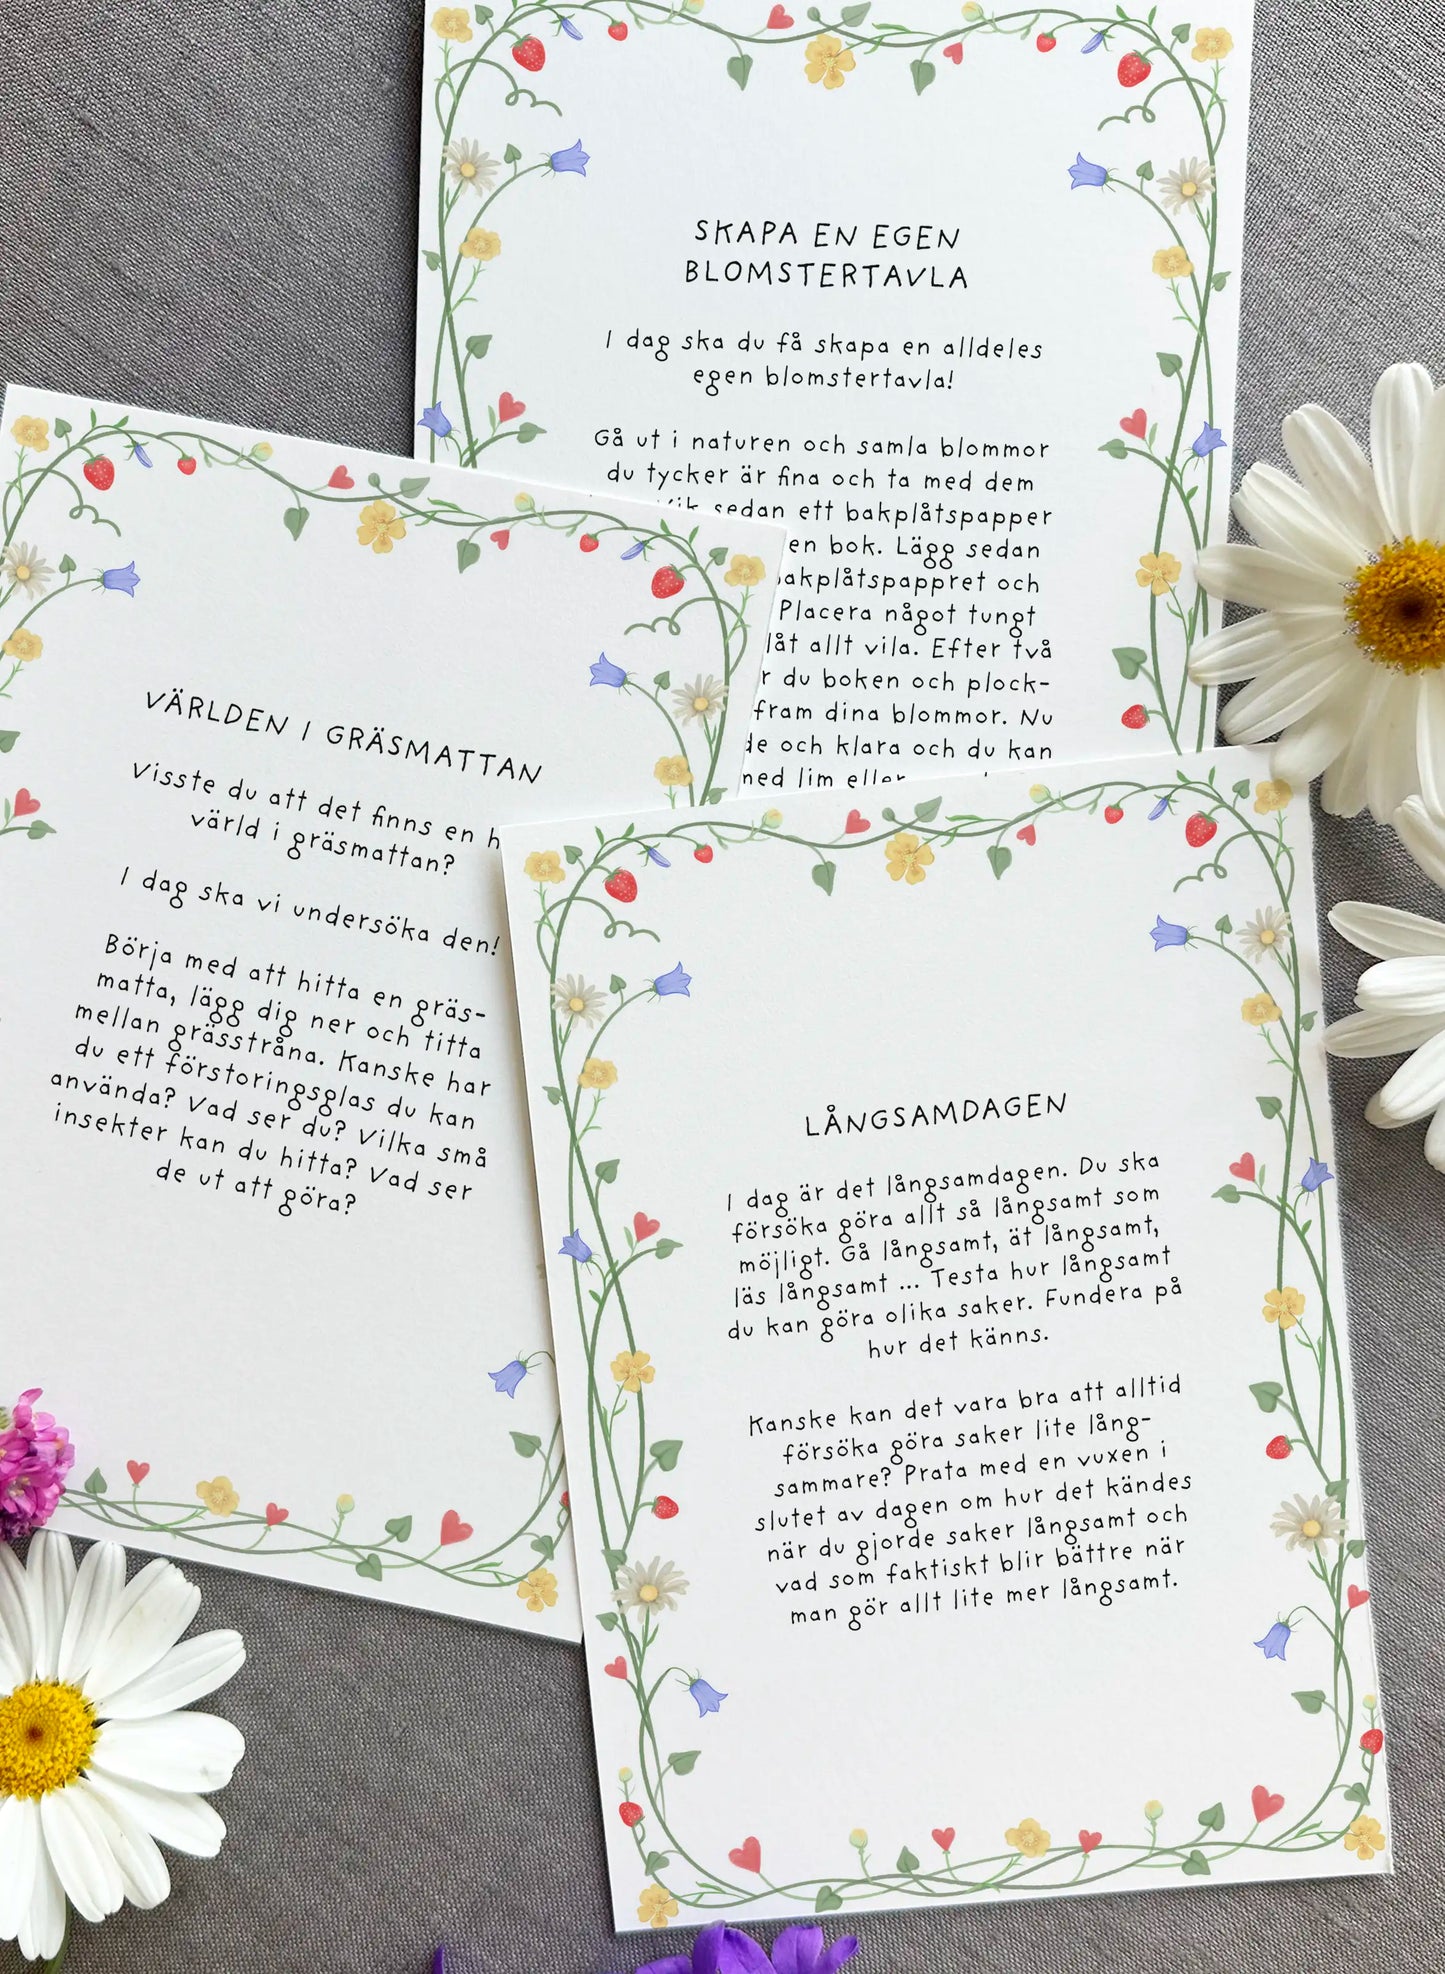 SKAPA EN EGEN
BLOMSTERTAVLA
I dag ska du få skapa en alldeles
egen blomstertavla!
Gå ut i naturen och samla blommor
du tycker är fina och ta med dem
sedan ett bakplåtspapper
en bok. Lägg sedan
bakplåtspappret och
Placera något tungt
låt allt vila. Efter två
du boken och plock-
fram dina blommor. Nu
och klara och du kan
med lim eller
VÄRLDEN I GRÄSMATTAN
Visste du att det finns en
värld i gräsmattan?
I dag ska vi undersöka den!
Börja med att hitta en gräs-
matta, lägg dig ner och titta
mellan grässtråna. Kanske har
du ett förstoringsglas du kan
använda? Vad ser du? Vilka små
insekter kan du hitta? Vad ser
de ut att göra?
LÅNGSAMDAGEN
I dag är det långsamdagen. Du ska
försöka göra allt så långsamt som
möjligt. Gå långsamt, ät långsamt,
läs långsamt ... Testa hur långsamt
du kan göra olika saker. Fundera på
hur det känns.
Kanske kan det vara bra att alltid
försöka göra saker lite lång-
sammare? Prata med en vuxen i
slutet av dagen om hur det kändes
när du gjorde saker långsamt och
vad som faktiskt blir bättre när
man gör allt lite mer långsamt.